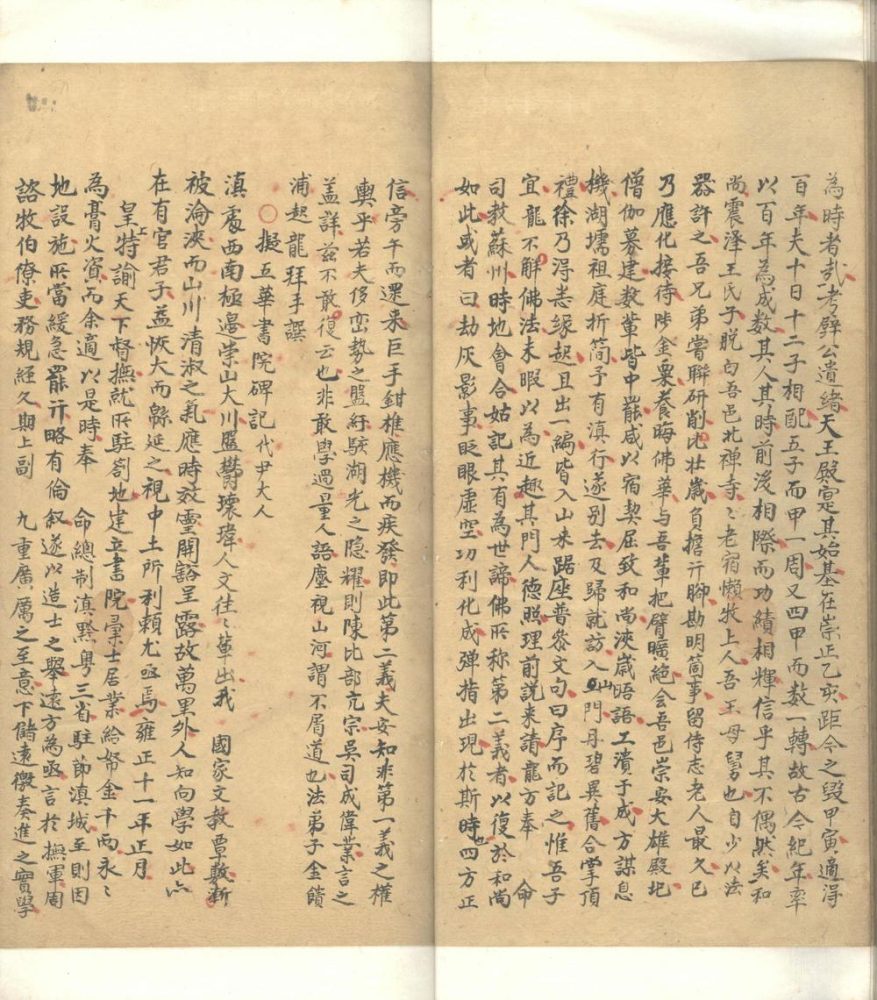 為時者哉考璧公遺緒天王殿寔其始基在崇正乙亥距今之毀甲寅適得
百年夫十日十二子相配五子而甲一周又四甲而數一轉故古今紀年率
以百年為成數其人其時前後相際而功績相輝信乎其不偶然矣和
尚震澤王氏子脫白吾邑北禪寺〻老宿懶牧上人吾王母舅也自少以法
器許之吾兄弟嘗聯研削比壯歲負擔行腳勘明箇事留侍志老人最久已
乃應化接待陟金粟養晦佛華与吾輩把臂曠絕会吾邑崇安大雄殿圮
僧伽募建教輩皆中罷咸以宿契屈致和尚浹歲晤語工潰于成方謀息
機湖壖祖庭折簡予有滇行遂別去及歸就訪入山門丹碧異舊合掌頂
禮徐乃淂悉緣起且出一編皆入山来踞座普叅文句曰序而記之惟吾子
宜龍不解佛法未暇以為近趣其門人德照理前說来請龍方奉 命
司教蘇州時地會合姑記其有為世諦佛所称第二義者以復於和尚
如此或者曰劫灰影事眨眼虛空功利化成弹指出現於斯時也四方正
信旁午而還来巨手鉗椎應機而疾發即此第二義夫安知非第一義之權
輿乎若夫侈巒勢之盤紆駭湖光之隐耀則陳比部亢宗吳司成偉業言之
盖詳茲不敢復云也非敢學過量人語塵視山河謂不屑道也法弟子金饋
浦起龍拜手譔
○擬五華書院碑記代尹大人
滇處西南極邊崇山大川盤鬱瓌瑋人文往〻輩出我 國家文教覃敷漸
被淪浹而山川清淑之氣應時孜霊開豁呈露故萬里外人知向學如此六
在有官君子益恢大而緜延之視中土所利賴尤亟焉雍正十一年正月
皇上特諭天下督撫就所駐劄地建立書院羣士居業給帑金千両永〻
為膏火資而余適以是時奉 命總制滇黔粤三省駐節滇城至則因
地設施所當緩急罷行略有倫叙遂以造士之舉遠方為亟言於撫軍周
諮牧伯僚吏務規經久期上副 九重廣厲之至意下儲遠徼奏進之實學